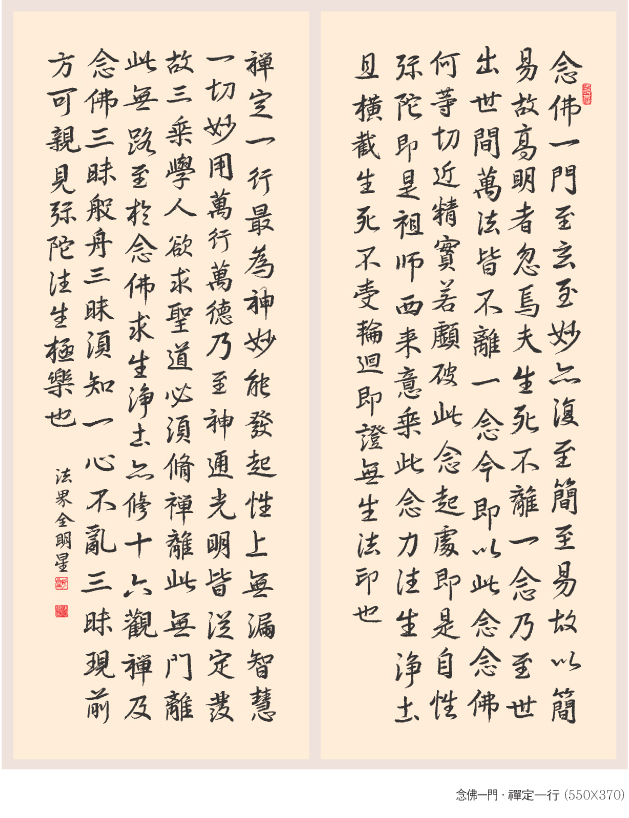 念佛一門至玄至妙亦復至簡至易故以簡
易故高明者忽焉夫生死不離一念乃至世
出世間萬法皆不離一念今即以此念念佛
何等切近精實若顧破此念起處即是自性
弥陀即是祖师西来意乘此念力往生淨土
且橫截生死不受輪迴即證無生法印也
禪定一行最為神妙能發起性上無漏智慧
一切妙用萬行萬德乃至神通光明皆從定發
故三乘學人欲求聖道必須脩禪離此無門離
此無路至於念佛求生淨土亦修十六觀禪及
念佛三昧般舟三昧須知一心不亂三昧現前
方可親見弥陀往生極樂也
法界全明星
念佛一門·禪定一行 (550X370)